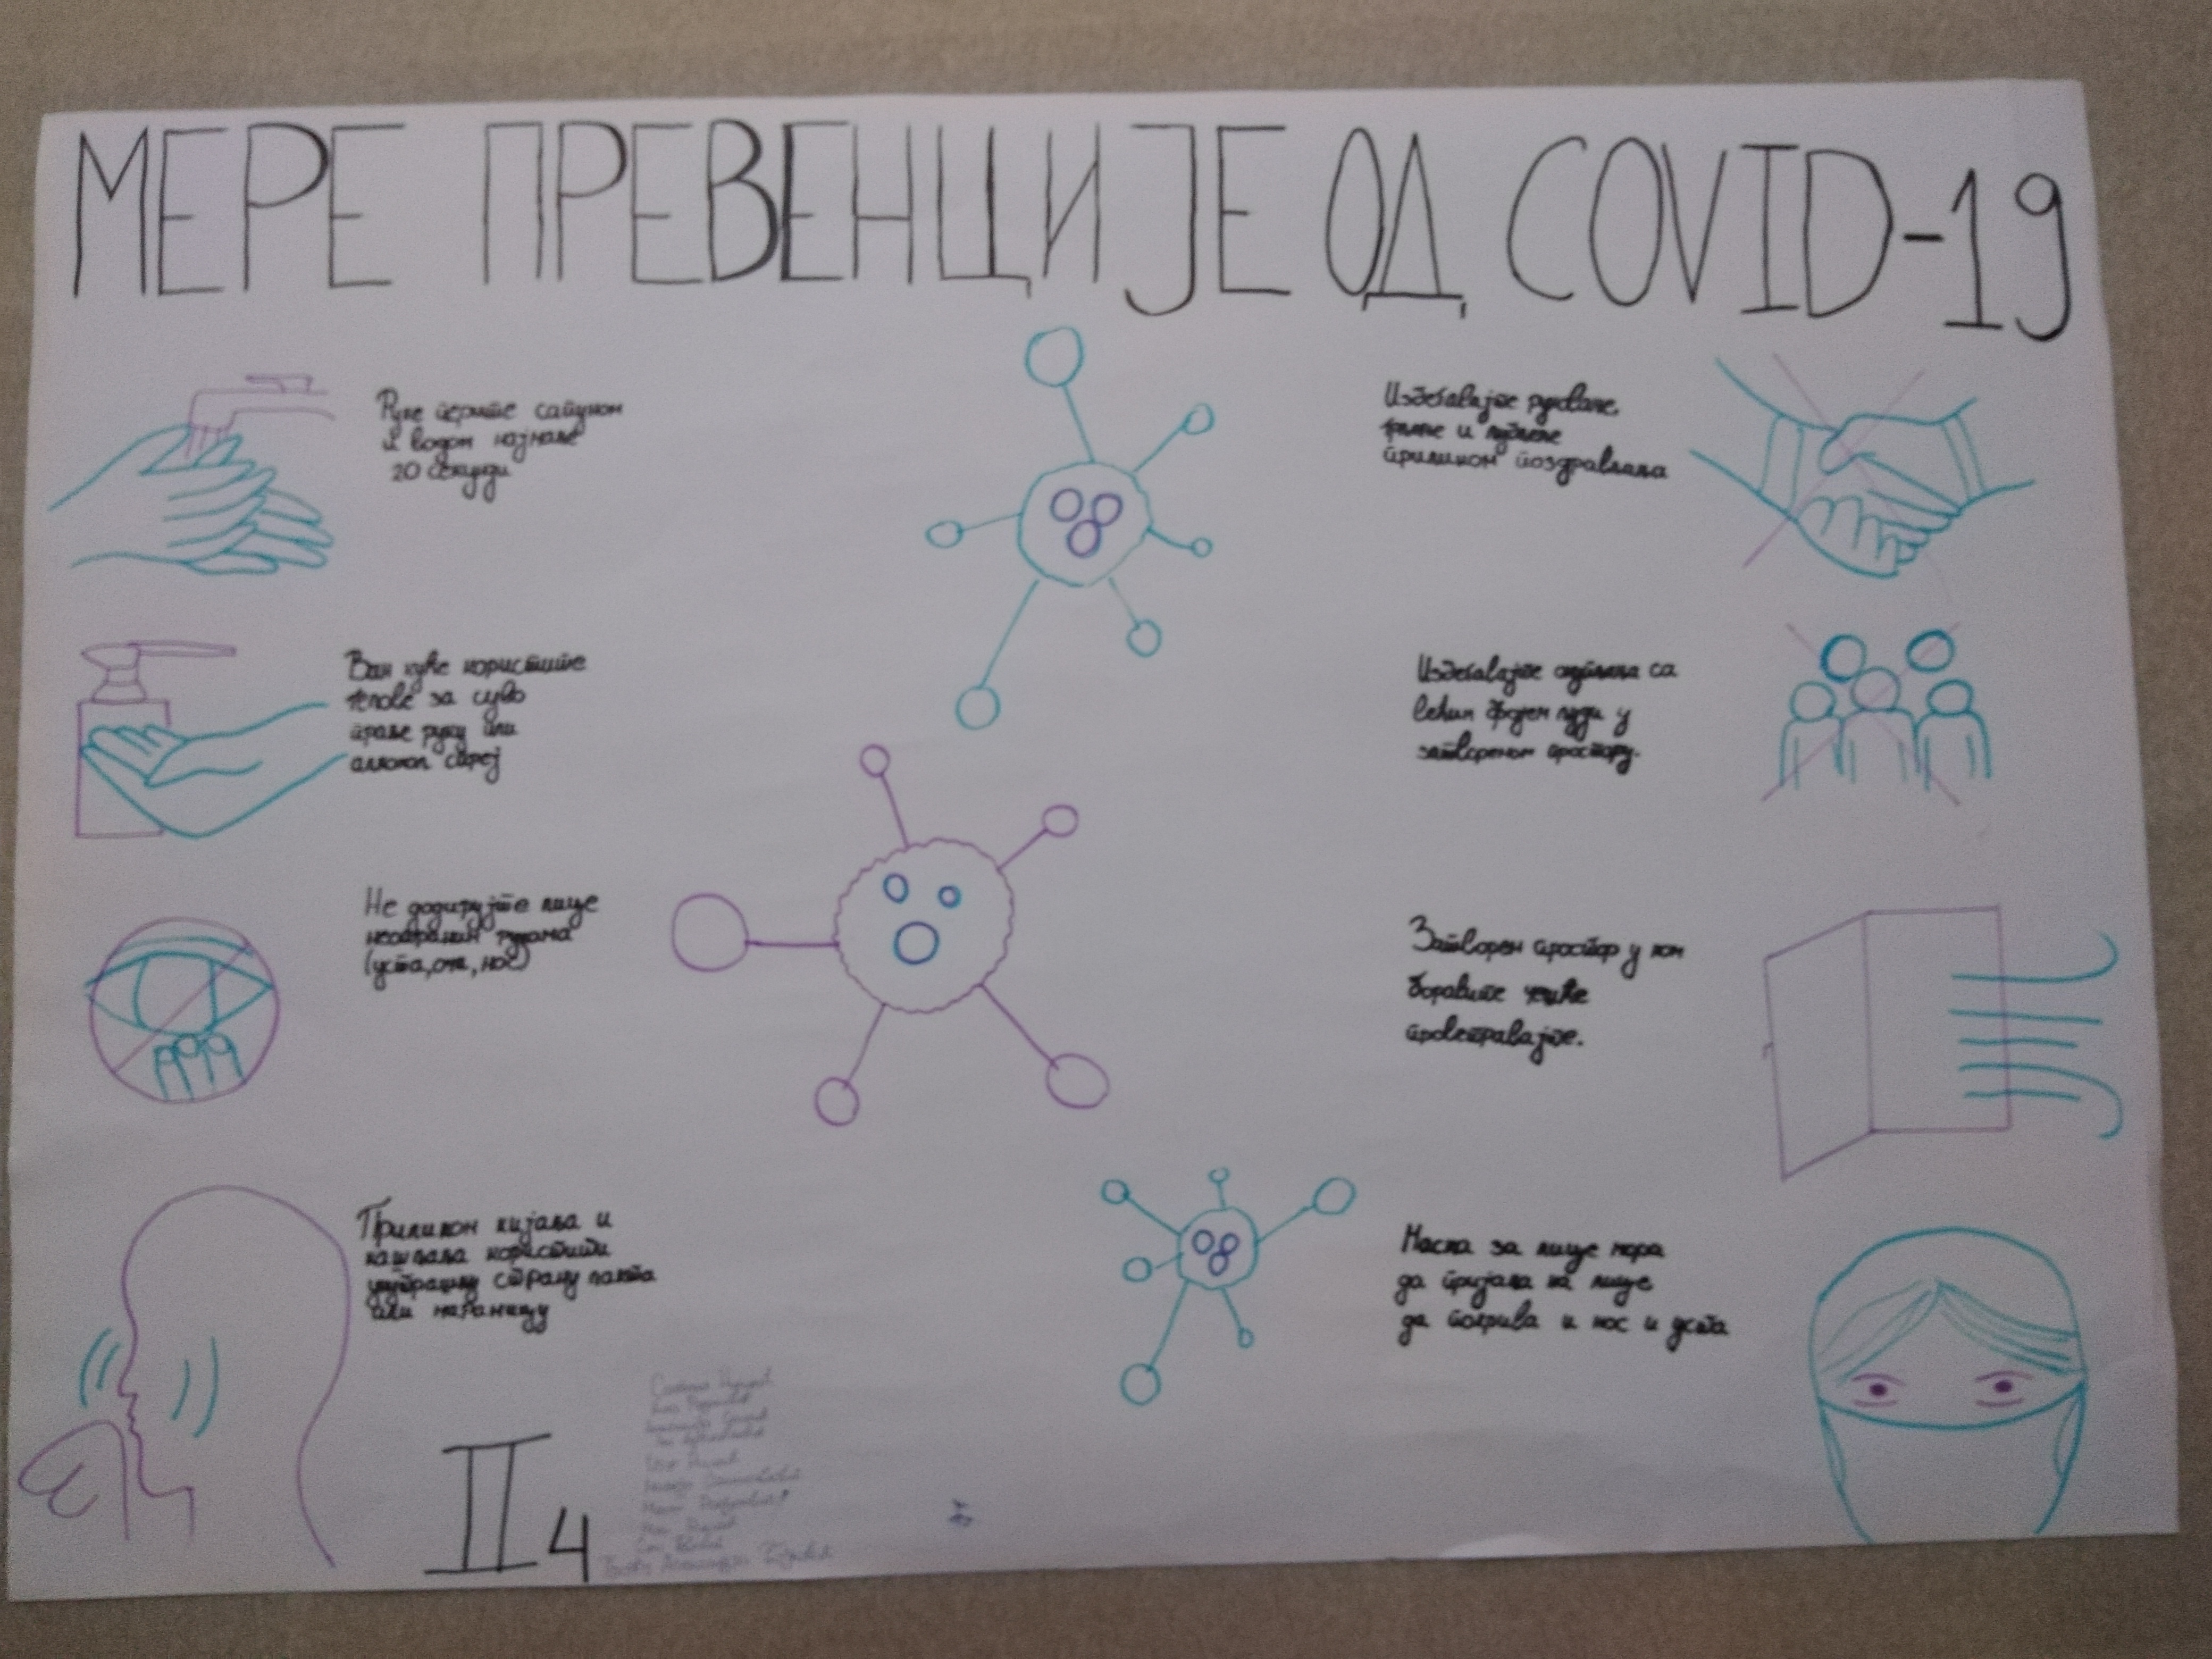 МЕРЕ ПРЕВЕНЦИЈЕ ОД COVID-19
Руке перите сапуном
и водом најмање
20 секунди
Ван куће користите
гелове за суво
прање руку или
алкохол спреј
Не додирујте лице
неопраним рукама
(уста, очи, нос)
Приликом кијања и
кашљања користити
унутрашњу страну лакта
или марамицу
II4
Избегавајте руковање,
грљење и љубљење
приликом поздрављања
Избегавајте окупљања са
већим бројем људи у
затвореном простору.
Затворен простор у ком
боравите чешће
проветравајте.
Маска за лице мора
да пријања на лице
да покрива и нос и уста